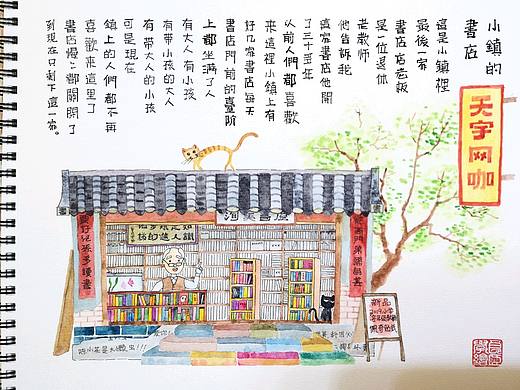 小鎮的
書店
這是小鎮裡
最後一家
書店店老板
是一位退休
老教師
他告訴我
這家書店他開
了三十五年
以前人們都喜歡
來這裡小鎮上有
好幾家書店每天
書店門前的臺階
上都坐滿了人
有大人有小孩
有帶小孩的大人
有帶大人的小孩
可是現在
鎮上的人們都不再
喜歡來這裡了
書店慢々都關閉了
到現在只剩下這一家。
天宇网咖
新品